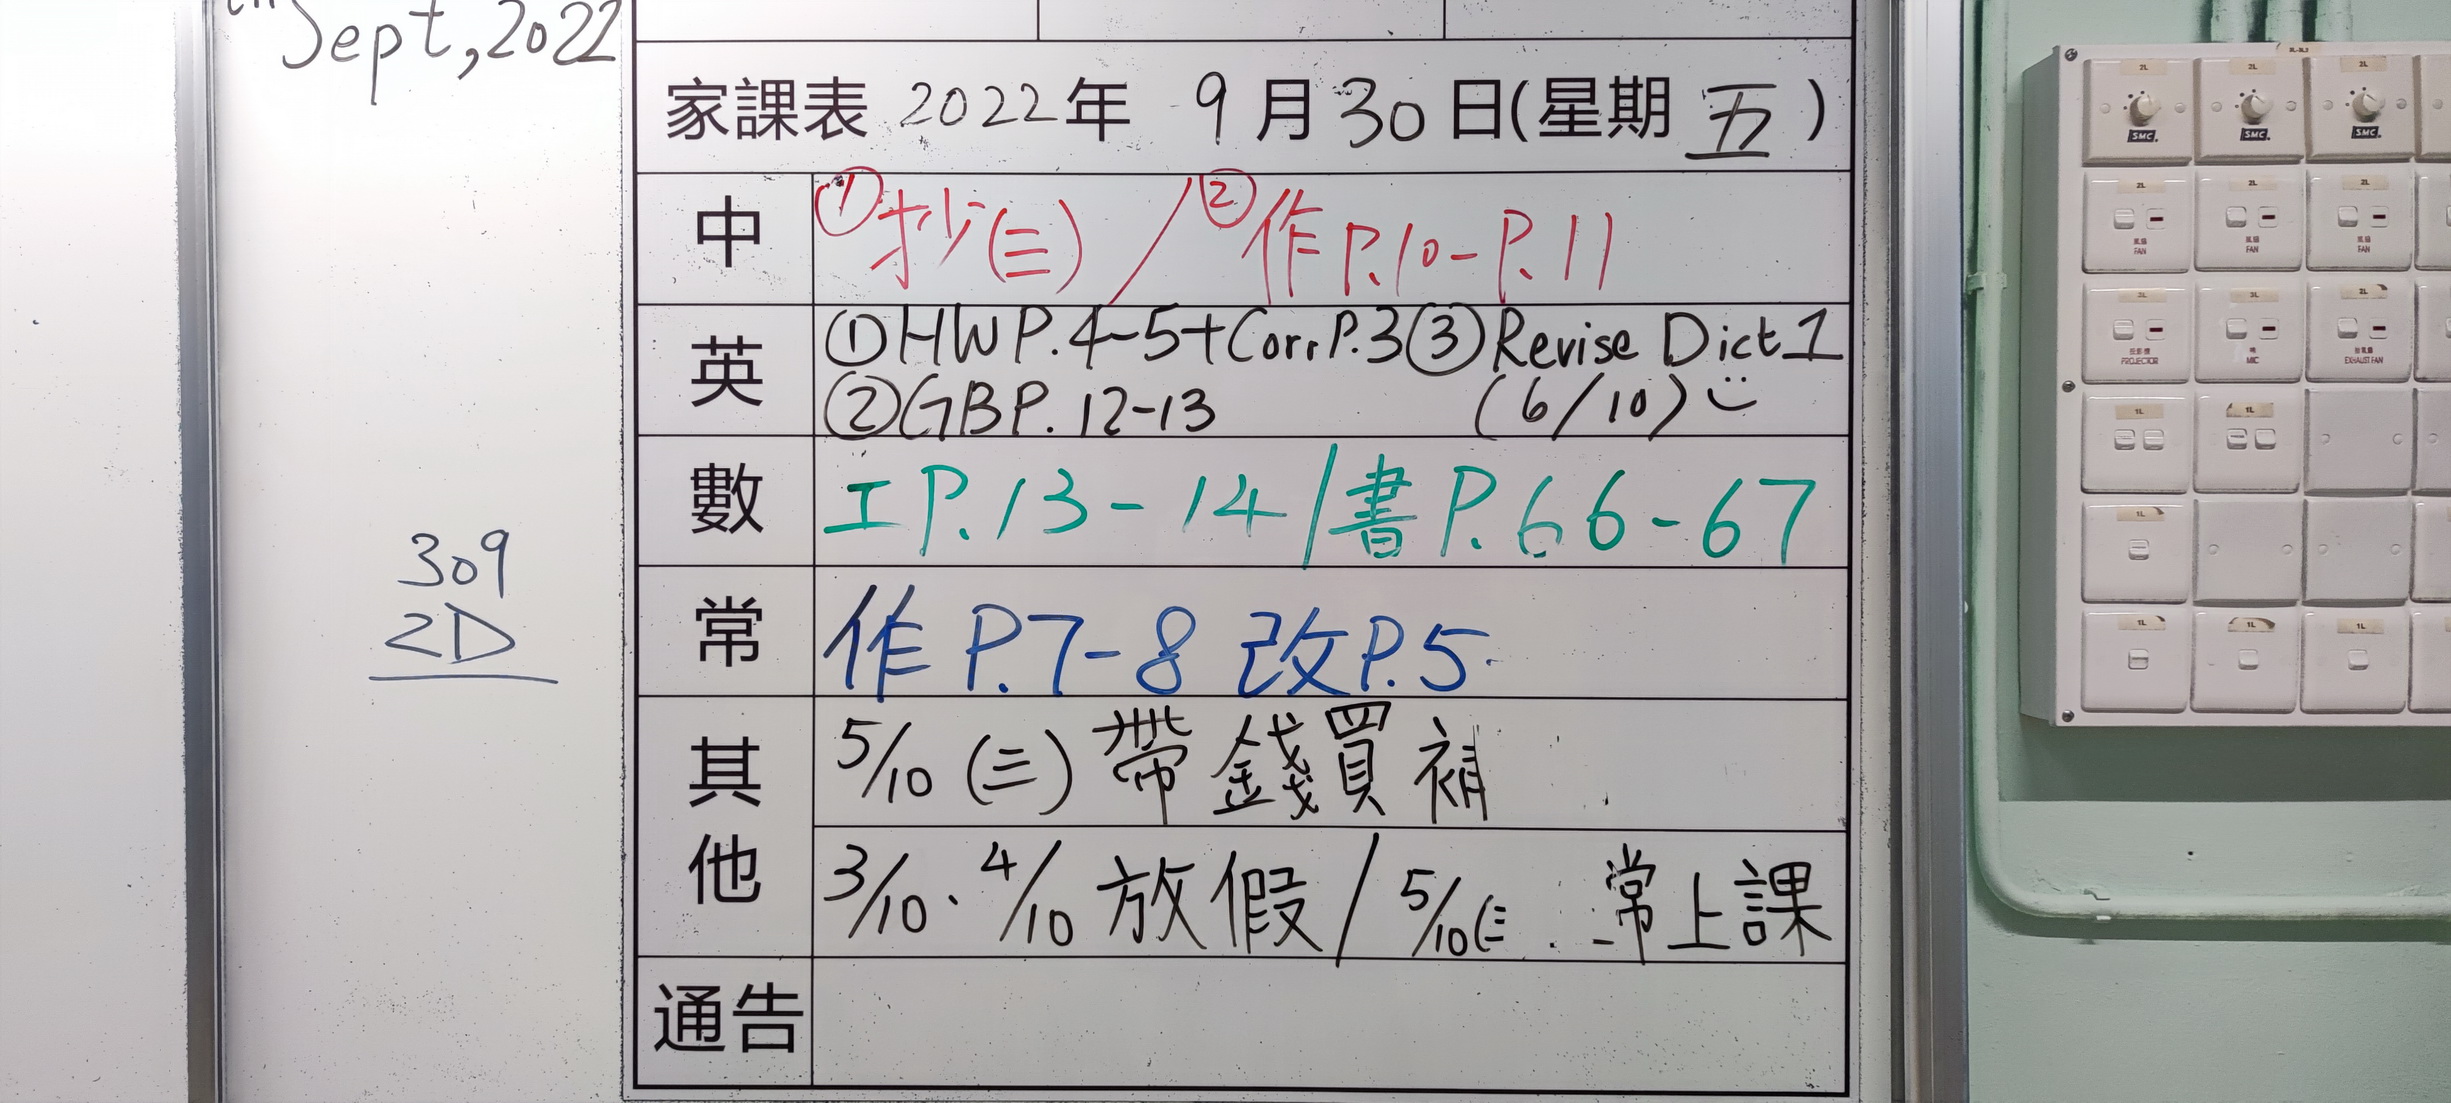 Sept, 2022
家課表 2022年 9月30日(星期五)
中 ①抄(三) / ②作P.10-P.11
英 ①HW P.4-5+Corr P.3 ③Revise Dict 1
②GB P. 12-13 (6/10)
數 工P.13-14/書P.66-67
常 作 P.7-8 改P.5
其他
5/10 (三) 帶錢買補
3/10、4/10 放假 / 5/10(三 常上課
通告
309
2D
2L 2L 2L
SMC SMC SMC
2L 2L 2L
風扇 風扇 風扇
FAN FAN FAN
2L
投影機 咪 抽氣扇
PROJECTOR MIC EXHAUST FAN
1L 1L
1L
1L 1L 1L